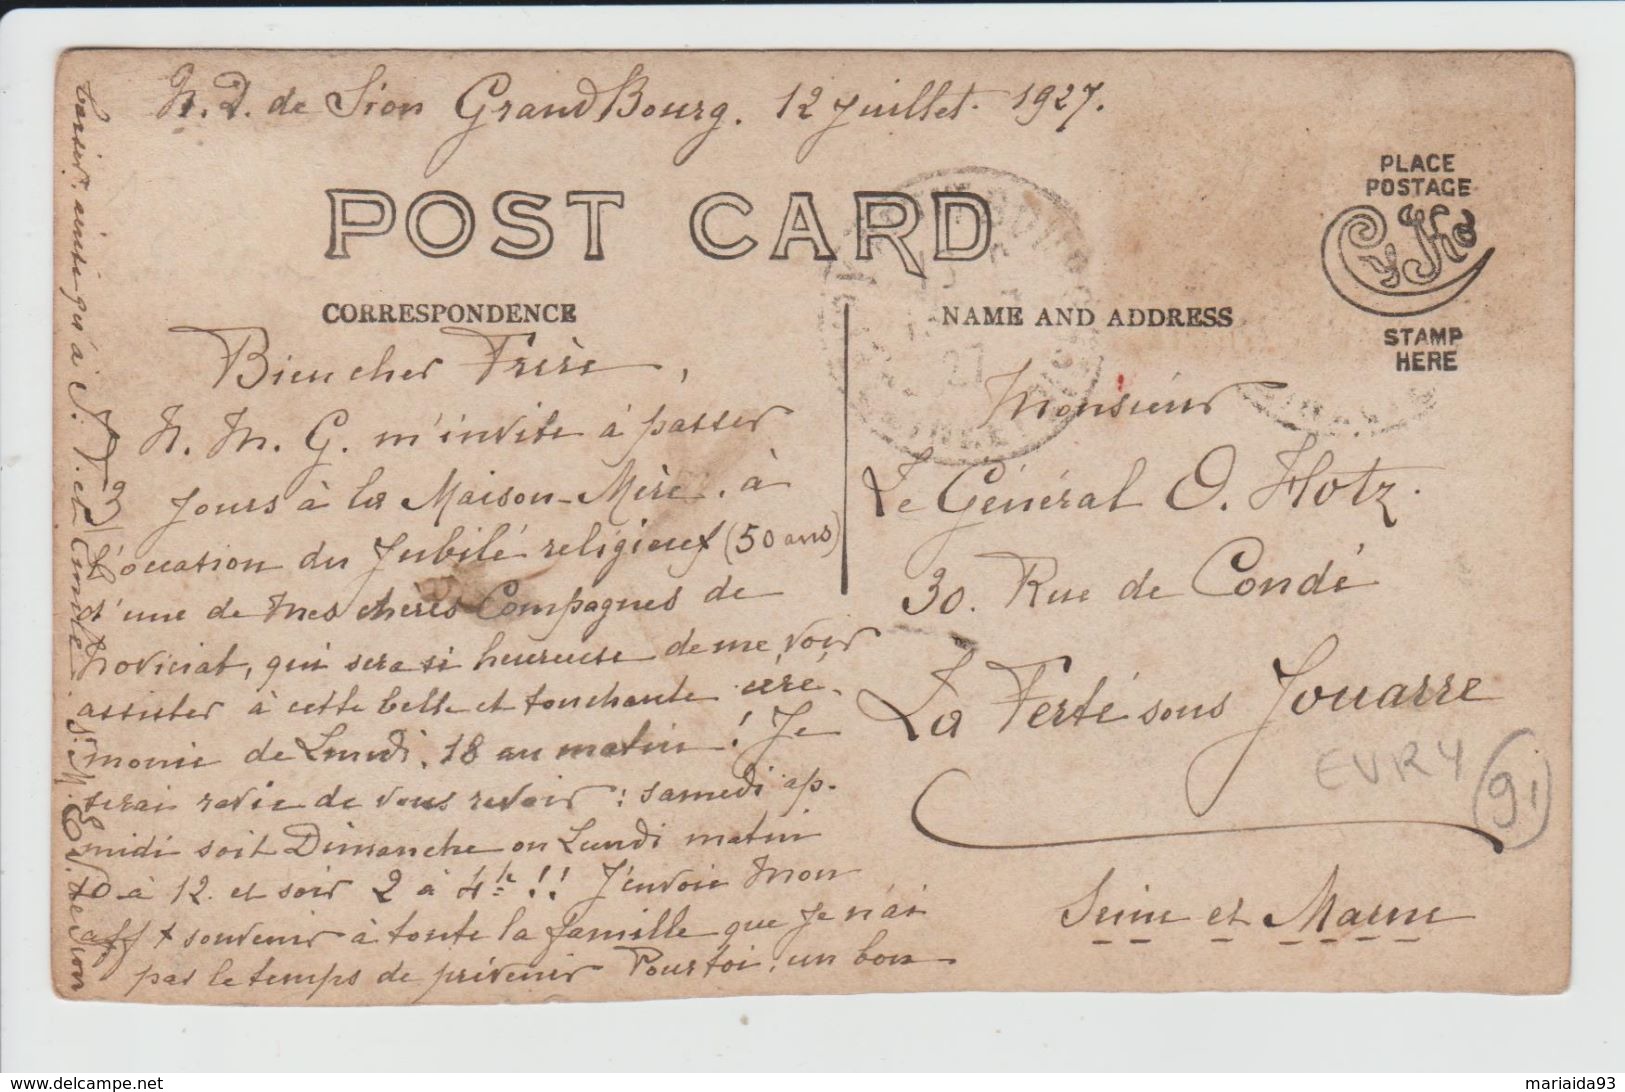 N. D. de Sion Grand Bourg. 12 Juillet. 1927.
POST CARD
CORRESPONDENCE
NAME AND ADDRESS
PLACE
POSTAGE
STAMP
HERE
Bien cher Frère,
N. M. G. m'invite à passer
3 jours à la Maison-Mère, à
l'occasion du Jubilé religieux (50 ans)
d'une de mes chères Compagnes de
noviciat, qui sera si heureuse de me voir
assister à cette belle et touchante céré-
monie de Lundi, 18 au matin! Je
serai ravie de vous revoir: samedi ap.
midi soit Dimanche ou Lundi matin
10 à 12 et soir 2 à 4h!! J'envoie mon
aff x souvenir à toute la famille que je n'ai
pas le temps de prévenir Pour toi, un bon
baiser, ainsi qu'à J. V. et Camille. Sr M. de Sion
Monsieur
Le Général O. Hotz.
30. Rue de Condé
La Ferté sous Jouarre
Seine et Marne
EVRY
91
27
mariaida93